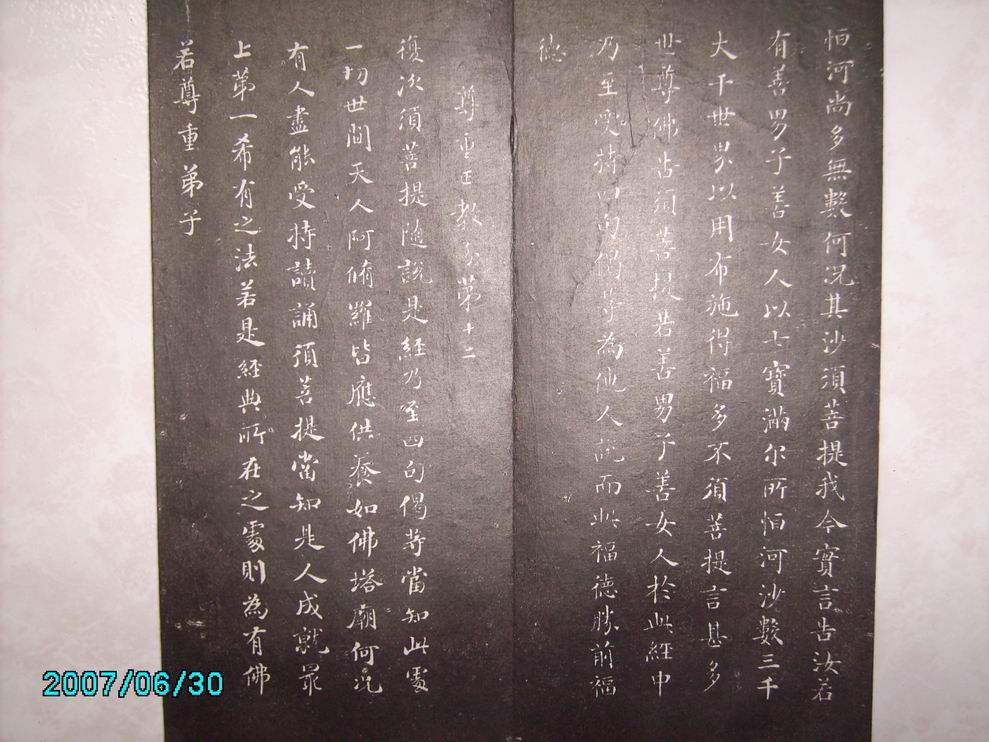 恒河尚多無數何况其沙須菩提我今實言告汝若
有善男子善女人以七寶滿尔所恒河沙數三千
大千世界以用布施得福多不須菩提言甚多
世尊佛告須菩提若善男子善女人於此經中
乃至受持四句偈等為他人說而此福德勝前福
德
尊重正教分第十二
復次須菩提隨說是經乃至四句偈等當知此處
一切世間天人阿脩羅皆應供養如佛塔廟何况
有人盡能受持讀誦須菩提當知是人成就最
上第一希有之法若是經典所在之處則為有佛
若尊重弟子
2007/06/30